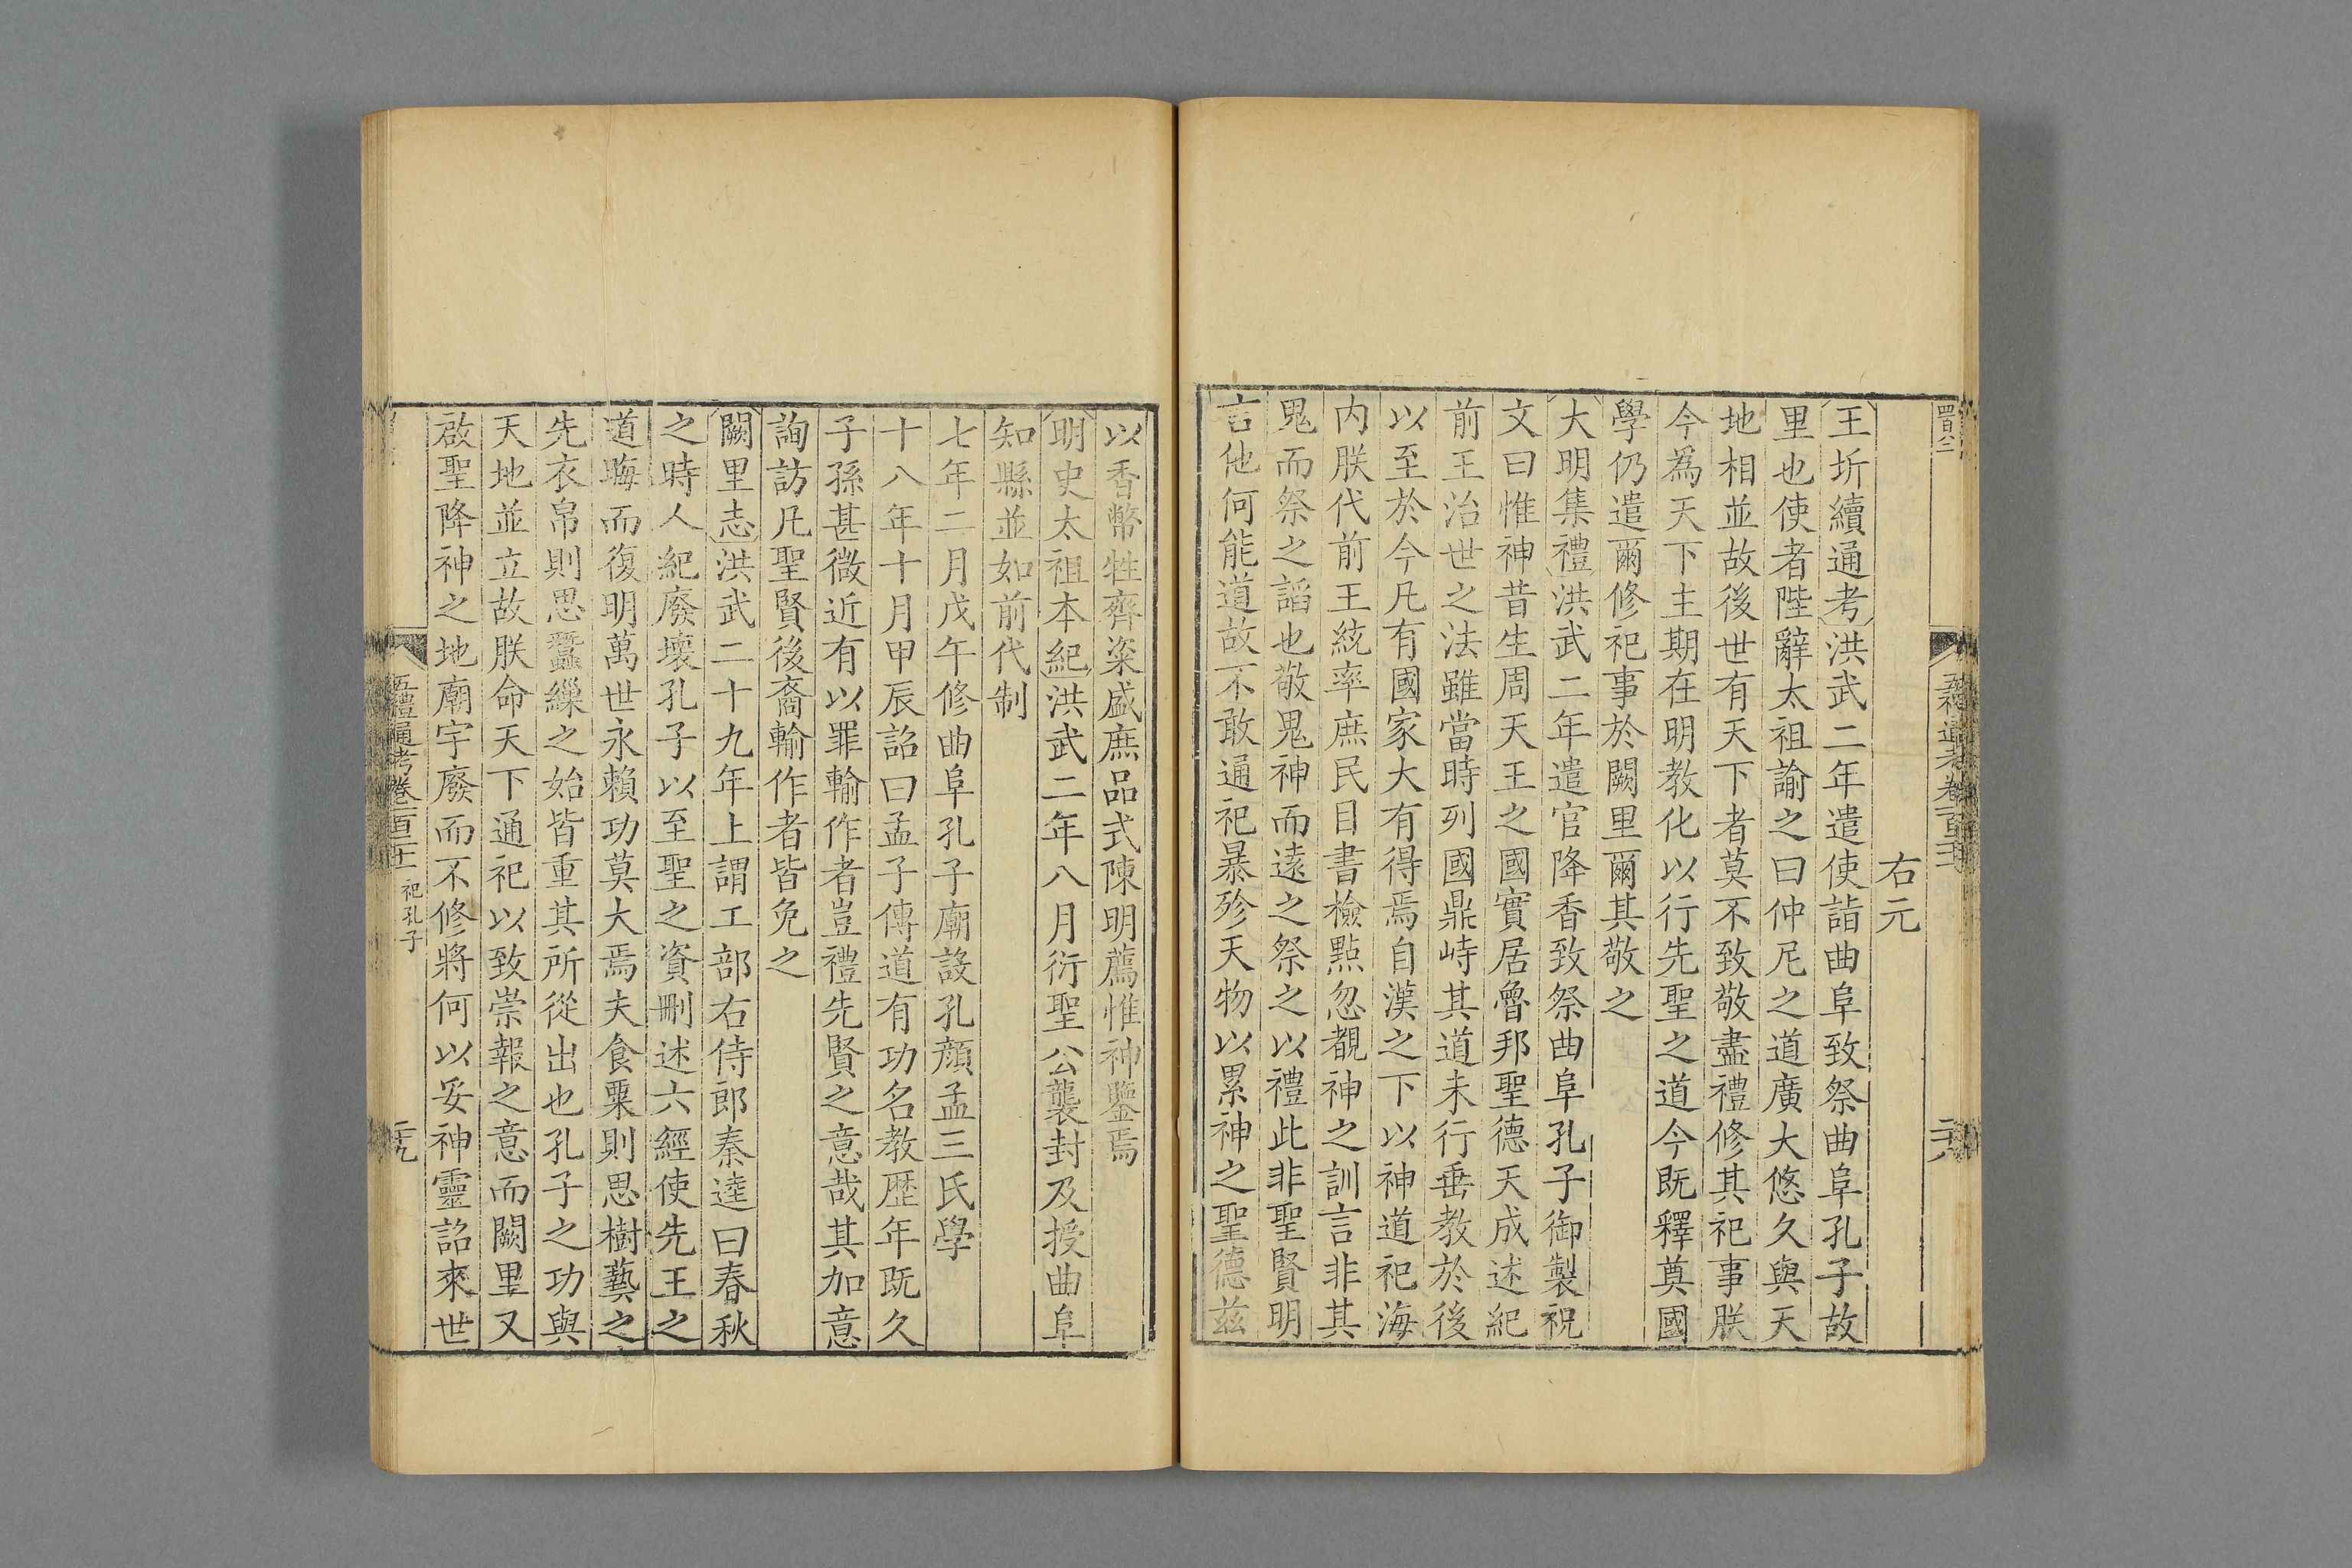 右元
王圻續通考洪武二年遣使詣曲阜致祭曲阜孔子故
里也使者陛辭太祖諭之曰仲尼之道廣大悠久與天
地相並故後世有天下者莫不致敬盡禮修其祀事朕
今為天下主期在明教化以行先聖之道今既釋奠國
學仍遣爾修祀事於闕里爾其敬之
大明集禮洪武二年遣官降香致祭曲阜孔子御製祝
文曰惟神昔生周天王之國實居魯邦聖德天成述紀
前王治世之法雖當時列國鼎峙其道未行垂教於後
以至於今凡有國家大有得焉自漢之下以神道祀海
内朕代前王統率庶民目書檢點忽覩神之訓言非其
鬼而祭之謟也敬鬼神而遠之祭之以禮此非聖賢明
言他何能道故不敢通祀暴殄天物以累神之聖德茲
以香幣牲齊粢盛庶品式陳明薦惟神鑒焉
明史太祖本紀洪武二年八月衍聖公襲封及授曲阜
知縣並如前代制
七年二月戊午修曲阜孔子廟設孔顔孟三氏學
十八年十月甲辰詔曰孟子傳道有功名教歴年既久
子孫甚微近有以罪輸作者豈禮先賢之意哉其加意
詢訪凡聖賢後裔輸作者皆免之
闕里志洪武二十九年上謂工部右侍郎秦逵曰春秋
之時人紀廢壞孔子以至聖之資刪述六經使先王之
道晦而復明萬世永賴功莫大焉夫食粟則思樹藝之
先衣帛則思蠶繅之始皆重其所從出也孔子之功與
天地並立故朕命天下通祀以致崇報之意而闕里又
啟聖降神之地廟宇廢而不修將何以妥神靈詔來世
五禮通考卷一百二十一 祀孔子
二十九